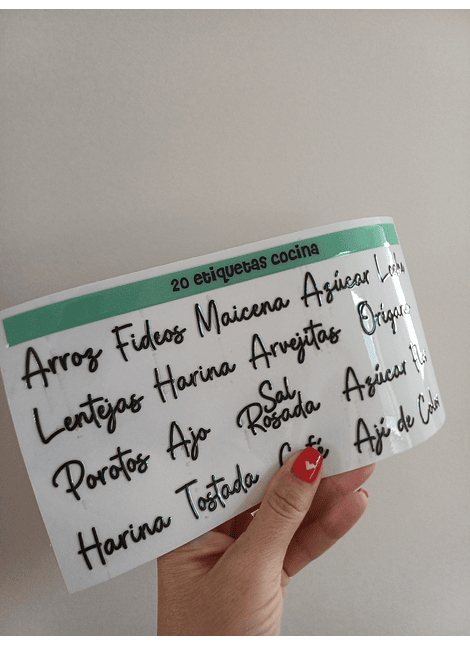 20 etiquetas cocina
Arroz Fideos Maicena Azúcar
Lentejas Harina Arvejitas
Porotos Ajo Sal Rosada Azúcar
Harina Tostada Café Ají de